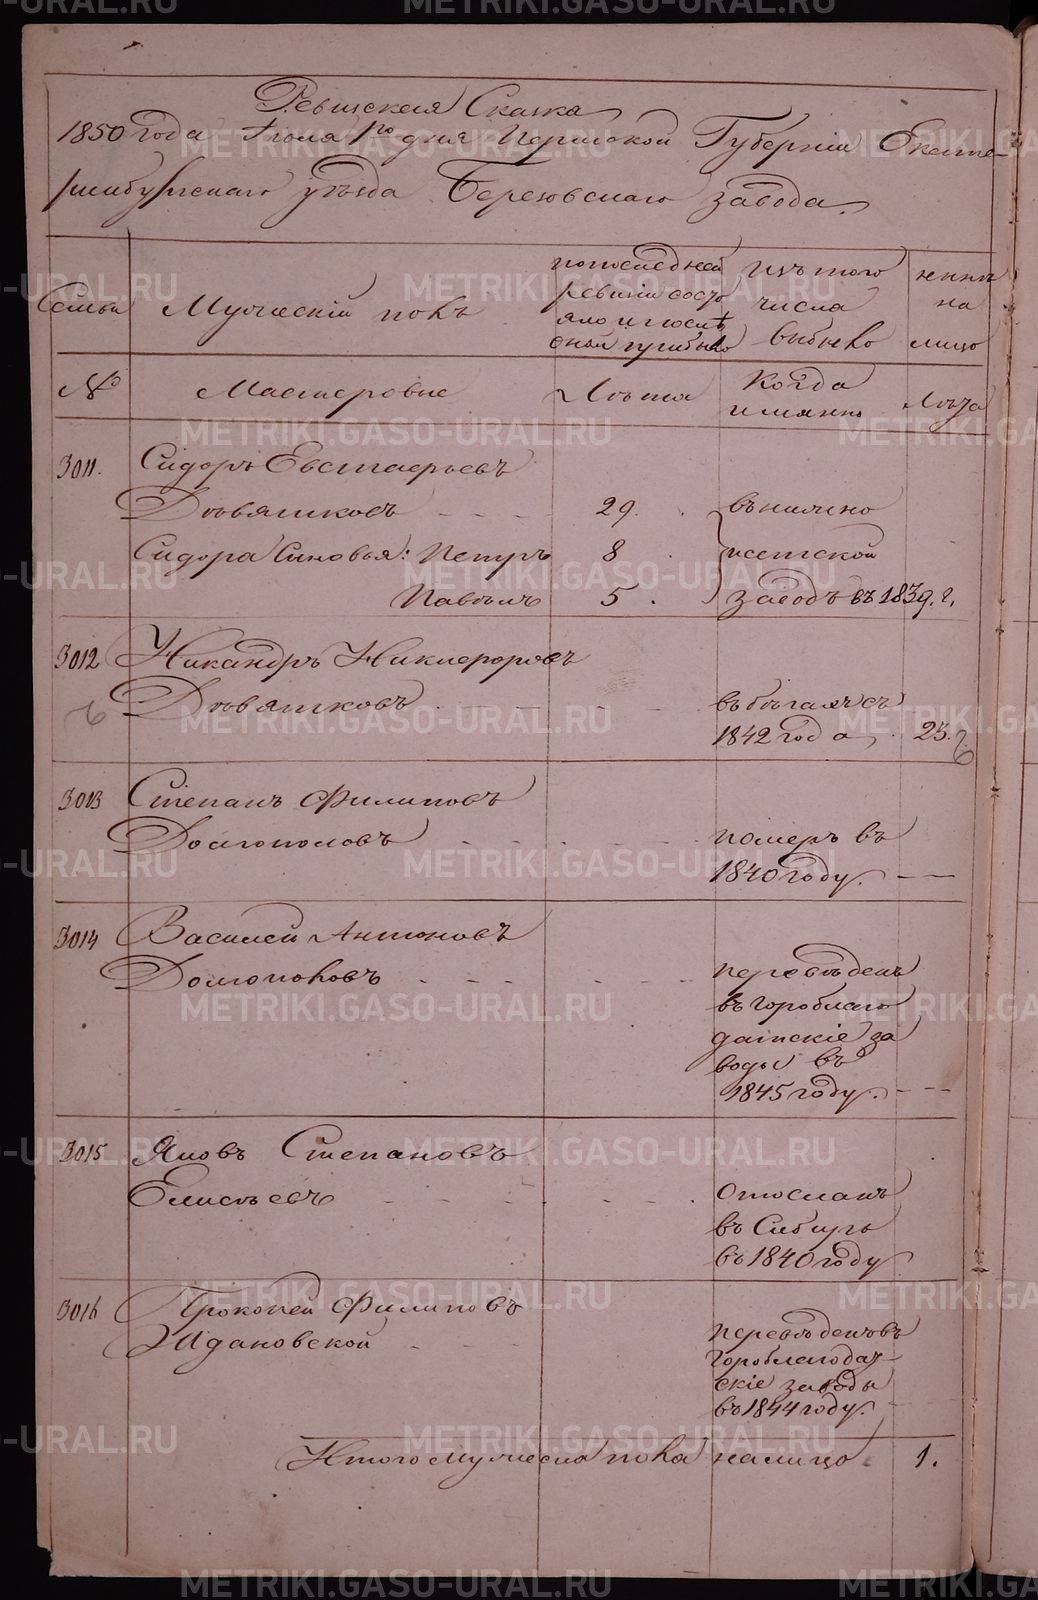 Ревизская Сказка
1850 года Июля 1го дня Пермской Губерніи Екате-
ринбургскаго уѣзда Березовскаго завода.
Семьи
Мужескій полъ
по последней
ревизіи состо
яло и после
оной прибыло
изъ того
числа
выбыло
нынѣ
на
лицо
№
Мастеровые
Лѣта
Когда
имянно
Лѣта
3011.
Сидоръ Евстафьевъ
Девяшковъ
29.
Сидора сыновья: Петръ
8
Павелъ
5.
въ нижно
исетской
заводъ въ 1839. г.
3012
Никандръ Никифоровъ
Девяшковъ
въ бѣгахъ съ
1842 года
23.
3013
Степанъ Филиповъ
Долгополовъ
померъ въ
1840 году.
3014
Василей Антоновъ
Долгополовъ
переведенъ
въ гороблаго
датскіе за
воды въ
1845 году.
3015
Яковъ Степановъ
Елисѣевъ
Отосланъ
въ Сибирь
въ 1840 году
3016
Прокопей Филиповъ
Ждановской
переведенъ въ
Гороблагодат-
скіе заводы
въ 1844 году.
Итого мужеска пола на лицо
1.
METRIKI.GASO-URAL.RU